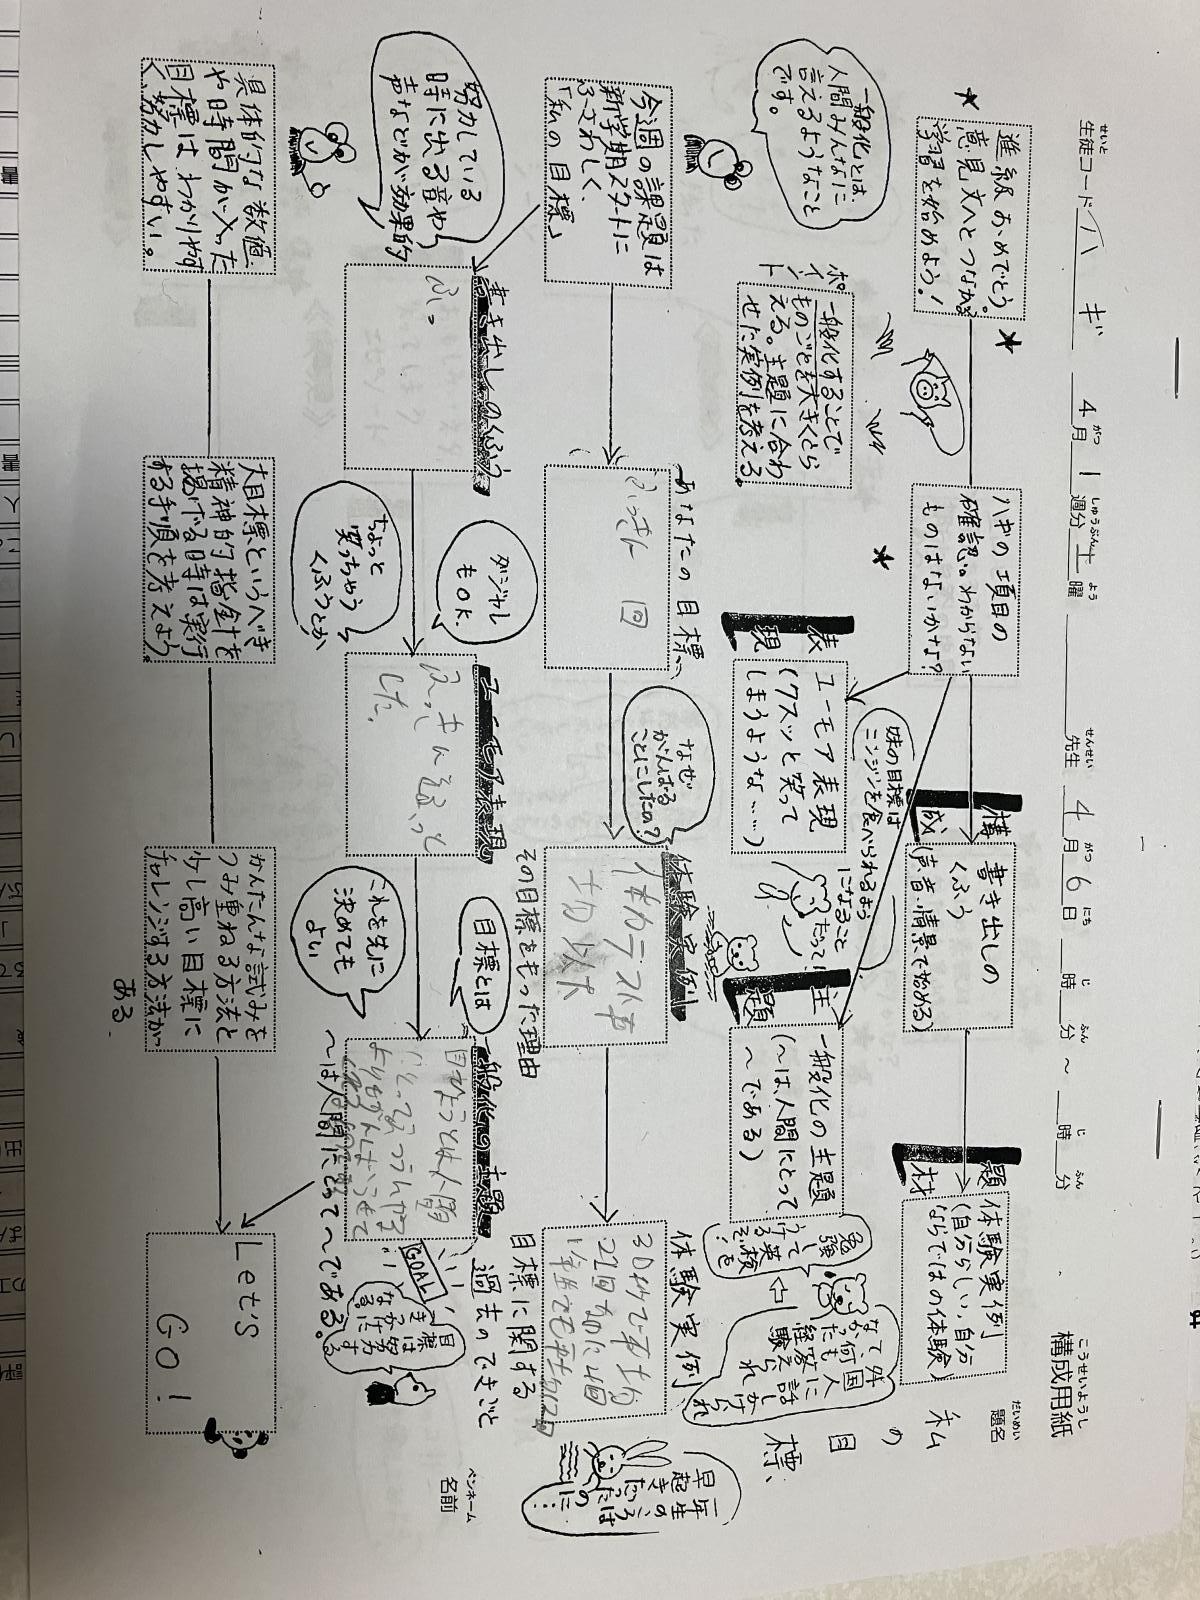 構成用紙
こうせいようし
生徒コード ハギ 4月1週分土曜 先生 4月6日 時 分 ～ 時 分
せいと がつ しゅうぶん よう せんせい がつ にち じ ふん じ ふん
題名
だいめい
私の目標
ペンネーム
名前
進級おめでとう。
意見文へとつながる
学習を始めよう!
ハギの項目の
確認。わからない
ものはないかな?
構成
書き出しの
くふう
(声・音・情景で始める)
題材
体験実例
(自分らしい、自分
ならではの体験)
一般化とは
人間みんなに
言えるようなこと
です。
ポイント
一般化することで
ものごとを大きくとら
える。主題に合わ
せた実例を考える。
表現
ユーモア表現
(クスッと笑って
しまうような……)
妹の目標は
ニンジンを食べられるよう
になること
だって!
主題
一般化の主題
(〜は、人間にとって
〜である)
勉強し
て英検を
うけるぞ!
外国人に話しかけられ
て、何も答えられ
なかった経験
今週の課題は
新学期スタートに
ふさわしく、
「私の目標」
あなたの目標は
ふっきん 回
なぜ
がんばる
ことにしたの?
体験実例
その目標をもった理由
体力テスト
体験実例
目標に関する
過去のできごと
30秒で
一年生のころは
早起きだった
のに…
努力している
時に出る音や
声などが効果的
書き出しのくふう
ふっ
ダジャレ
もOK
ちょっと
笑っちゃう
くふうとか
ユーモア表現
した。
目標とは
これを先に
決めても
よい
一般化の主題
目ひょうとは人間
にとって
〜は人間にとって〜である。
GOAL
目標は
努力する
具体的な数値
や時間が入った
目標はわかりやす
く、努力しやすい。
大目標というべき
精神的指針を
掲げる時は実行
する手順を考えよう。
かんたんな試みを
つみ重ねる方法と
少し高い目標に
チャレンジする方法が
ある。
Let's
GO!